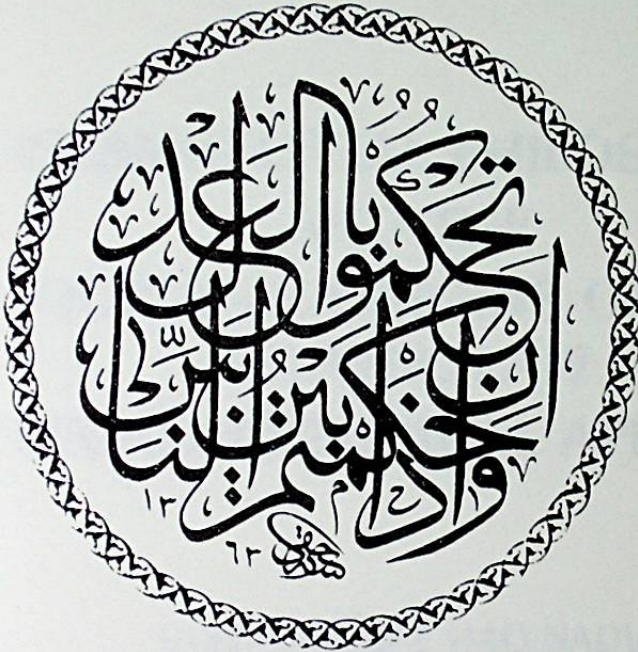 وَاِذَا حَكَمْتُمْ بَيْنَ النَّاسِ
اَنْ تَحْكُمُوا بِالْعَدْلِ
١٣
٦٣